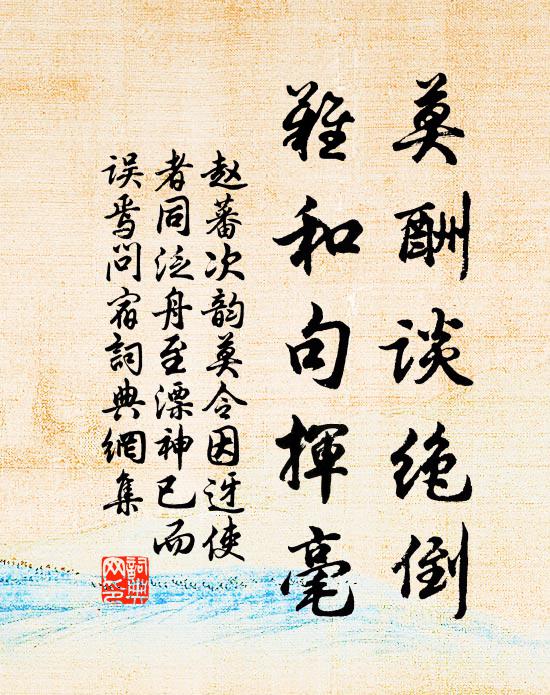 莫酬谈绝倒
难和句揮毫
赵蕃次韵莫令因迓使
者同泛舟至漂神已而
误焉问宿詞典網集
詞典网